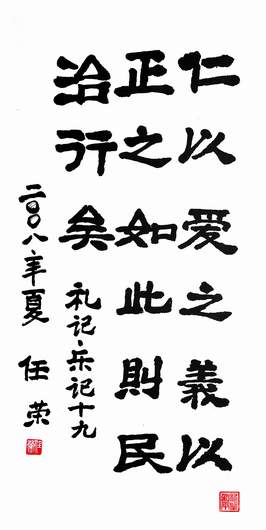 仁以爱之義以
正之如此則民
治行矣
礼记·乐记十九
二〇〇八年夏 任荣